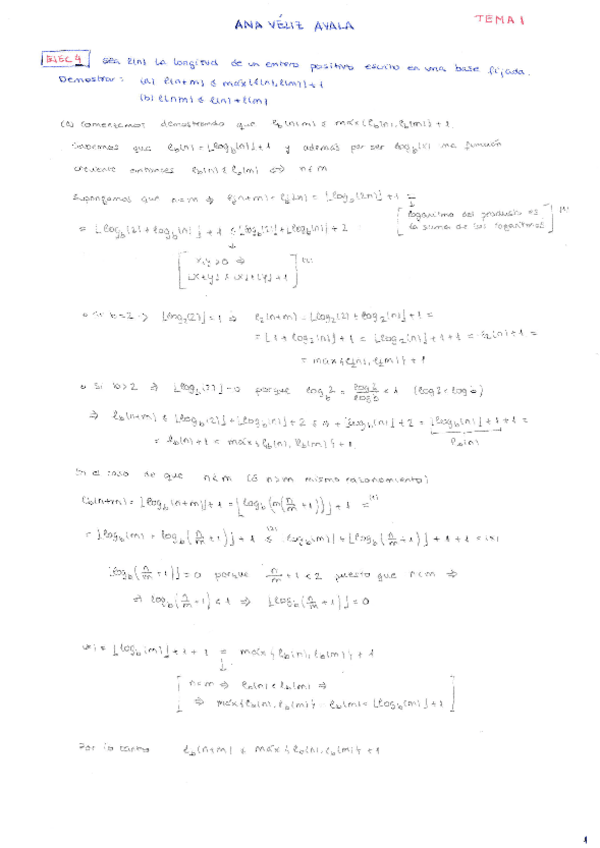 ANA VÉLIZ AYALA
TEMA 1
EJEC 4 Sea l(n) la longitud de un entero positivo escrito en una base fijada.
Demostrar: (a) l(n+m) ≤ máx{l(n), l(m)} + 1
(b) l(nm) ≤ l(n) + l(m)
(a) Comencemos demostrando que l_b(n+m) ≤ máx{l_b(n), l_b(m)} + 1
Sabemos que l_b(n) = ⌊log_b(n)⌋ + 1 y además por ser log_b(x) una función
creciente entonces l_b(n) ≤ l_b(m) ⇔ n ≤ m
Supongamos que n=m ⇒ l_b(n+m) = l_b(2n) = ⌊log_b(2n)⌋ + 1 =
[logaritmo del producto es la suma de los logaritmos] (1)
= ⌊log_b(2) + log_b(n)⌋ + 1 ≤ ⌊log_b(2)⌋ + ⌊log_b(n)⌋ + 2
[x,y > 0 ⇒
⌊x+y⌋ ≤ ⌊x⌋ + ⌊y⌋ + 1] (2)
• Si b=2 ⇒ ⌊log_2(2)⌋ = 1 ⇒ l_2(n+m) = ⌊log_2(2) + log_2(n)⌋ + 1 =
= ⌊1 + log_2(n)⌋ + 1 = ⌊log_2(n)⌋ + 1 + 1 = l_2(n) + 1 =
= máx{l_2(n), l_2(m)} + 1
• Si b>2 ⇒ ⌊log_b(2)⌋ = 0 porque log_b 2 = log 2 / log b < 1 (log 2 < log b)
⇒ l_b(n+m) ≤ ⌊log_b(2)⌋ + ⌊log_b(n)⌋ + 2 = 0 + ⌊log_b(n)⌋ + 2 = ⌊log_b(n)⌋ + 1 + 1 =
l_b(n)
= l_b(n) + 1 = máx{l_b(n), l_b(m)} + 1
En el caso de que n<m (ó n>m mismo razonamiento)
l_b(n+m) = ⌊log_b(n+m)⌋ + 1 = ⌊log_b(m(n/m + 1))⌋ + 1 =(1)
= ⌊log_b(m) + log_b(n/m + 1)⌋ + 1 ≤(2) ⌊log_b(m)⌋ + ⌊log_b(n/m + 1)⌋ + 1 + 1 = (*)
⌊log_b(n/m + 1)⌋ = 0 porque n/m + 1 < 2 puesto que n<m ⇒
⇒ log_b(n/m + 1) < 1 ⇒ ⌊log_b(n/m + 1)⌋ = 0
(*) = ⌊log_b(m)⌋ + 1 + 1 = máx{l_b(n), l_b(m)} + 1
[n<m ⇒ l_b(n) ≤ l_b(m) ⇒
⇒ máx{l_b(n), l_b(m)} = l_b(m) = ⌊log_b(m)⌋ + 1]
Por lo tanto l_b(n+m) ≤ máx{l_b(n), l_b(m)} + 1
1